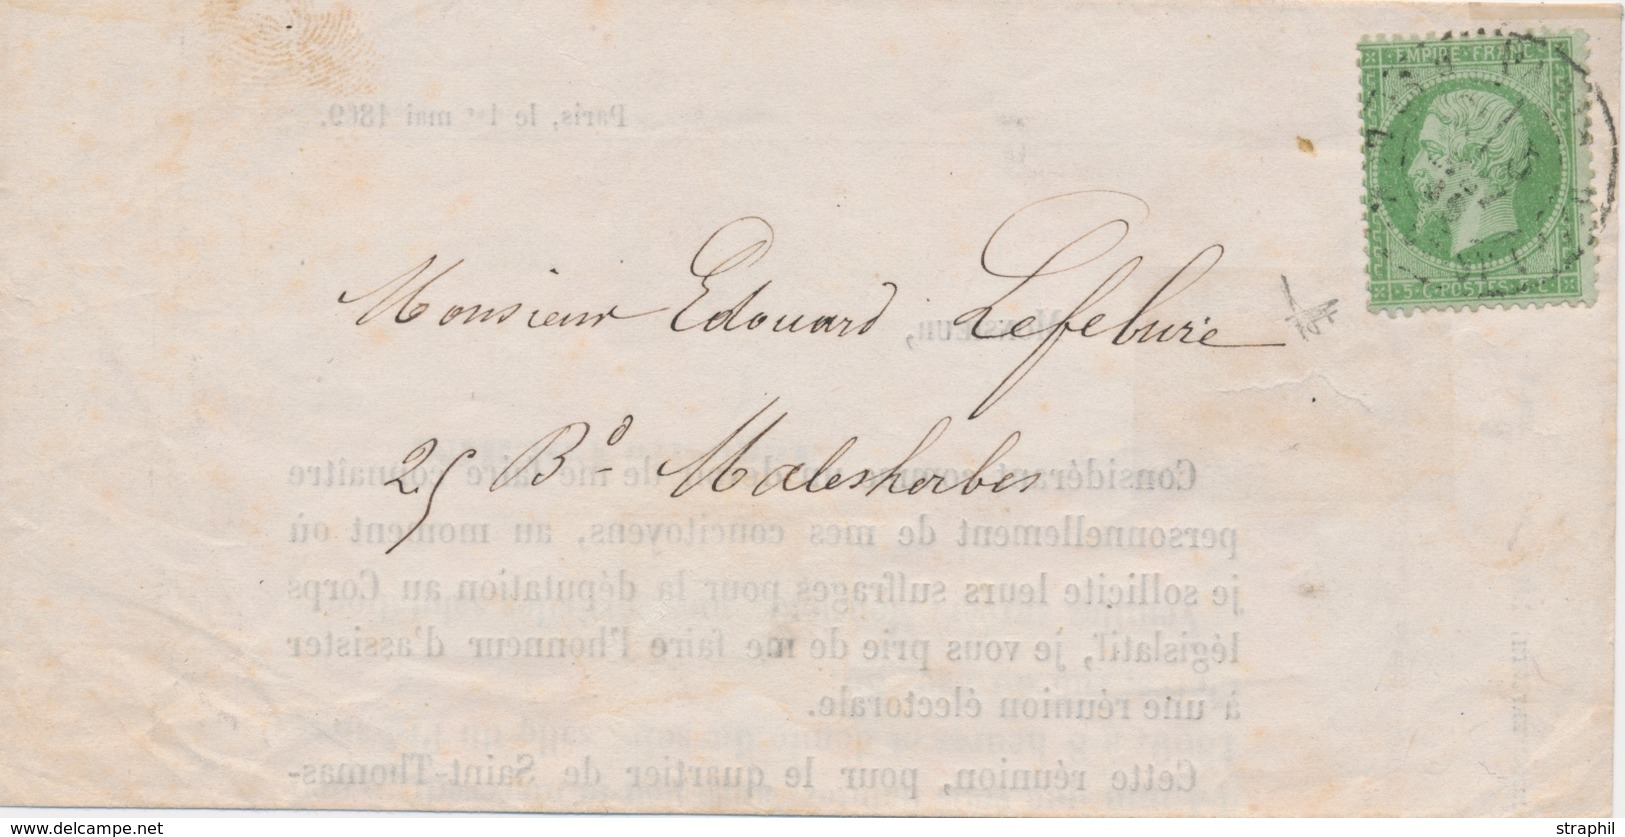 EMPIRE FRANC
Paris, le 1er mai 1869.
5 C POSTES 5 C
Monsieur Edouard Lefebure
Monsieur,
25 Bd Malesherbes
Considérant comme un de me faire connaître
personnellement de mes concitoyens, au moment où
je sollicite leurs suffrages pour la députation au Corps
législatif, je vous prie de me faire l'honneur d'assister
à une réunion électorale.
Cette réunion, pour le quartier de Saint-Thomas-
© www.delcampe.net
straphil